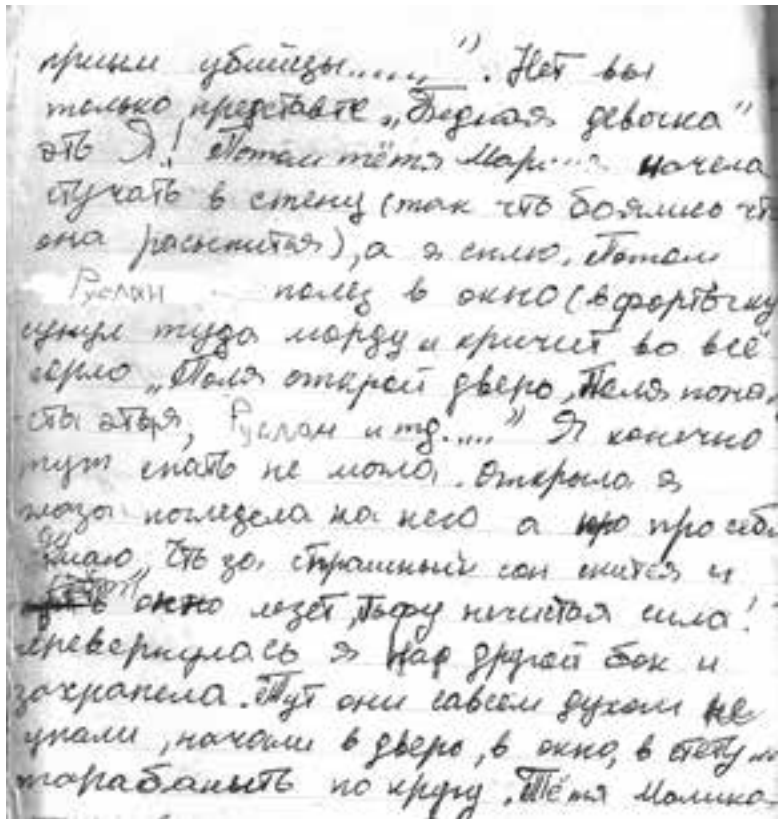 пришли убийцы......". Нет вы
только представте „Бедная девочка"
эть Я! Потом тётя Мар.... начела
стучать в стену (так что боялись чт
она рассыпится), а я сплю. Потом
Руслан полез в окно (в фортычку
сунул туда морду и кричит во всё
горло „Поля открой дверь, Поля пожа
ста этья, Руслан и тд....." Я конечно
тут спать не могла. Открыла я
глаза погледела на него а про себя
думаю, Чть за страшный сон снится и
в окно лезет, тьфу нечистая сила!
преревернулась я над другой бок и
захрапела. Тут они савсем духом не
упали, начали в дверь, в окно, в стену
тарабаныть по кругу. Тётя Малика